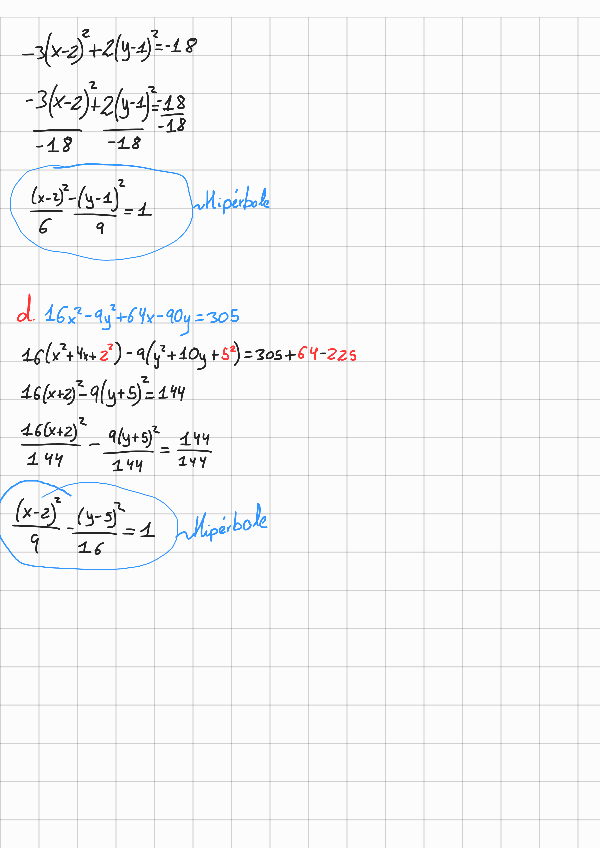 -3(x-2)²+2(y-1)²=-18
-3(x-2)²/-18 + 2(y-1)²/-18 = -18/-18
(x-2)²/6 - (y-1)²/9 = 1 Hipérbole
d. 16x²-9y²+64x-90y=305
16(x²+4x+2²)-9(y²+10y+5²)=305+64-225
16(x+2)²-9(y+5)²=144
16(x+2)²/144 - 9(y+5)²/144 = 144/144
(x-2)²/9 - (y-5)²/16 = 1 Hipérbole